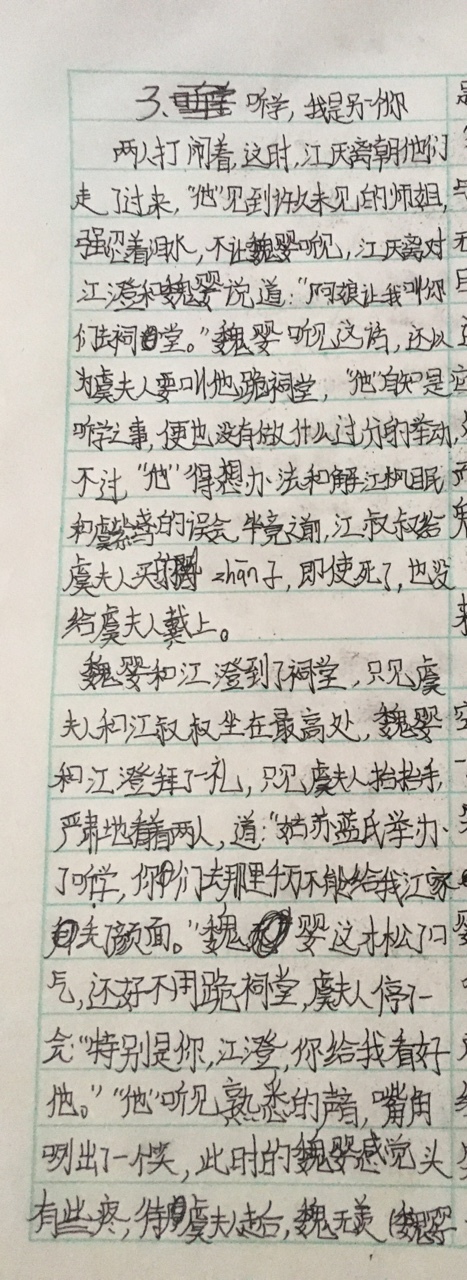 3、听学，我是另一个你
两人打闹着，这时，江厌离朝他们
走了过来，“他”见到许久未见的师姐，
强忍着泪水，不让魏婴听见，江厌离对
江澄和魏婴说道：“阿娘让我叫你
们去祠堂。”魏婴听见这话，还以
为虞夫人要叫他跪祠堂，“他”自知是
听学之事，便也没有做什么过分的举动，
不过“他”得想办法和解江枫眠
和虞紫鸢的误会，毕竟之前，江叔叔给
虞夫人买的 zhān子，即使死了，也没
给虞夫人戴上。
魏婴和江澄到了祠堂，只见虞
夫人和江叔叔坐在最高处，魏婴
和江澄拜了一礼，只见虞夫人抬抬手，
严肃地看着两人，道：“姑苏蓝氏举办
了听学，你们去那里千万不能给我江家
丢了颜面。”魏婴这才松了口
气，还好不用跪祠堂，虞夫人停了一
会：“特别是你，江澄，你给我看好
他。”“他”听见熟悉的声音，嘴角
咧出了一个笑，此时的魏婴感觉头
有些疼，待虞夫人走后，魏无羡（魏婴